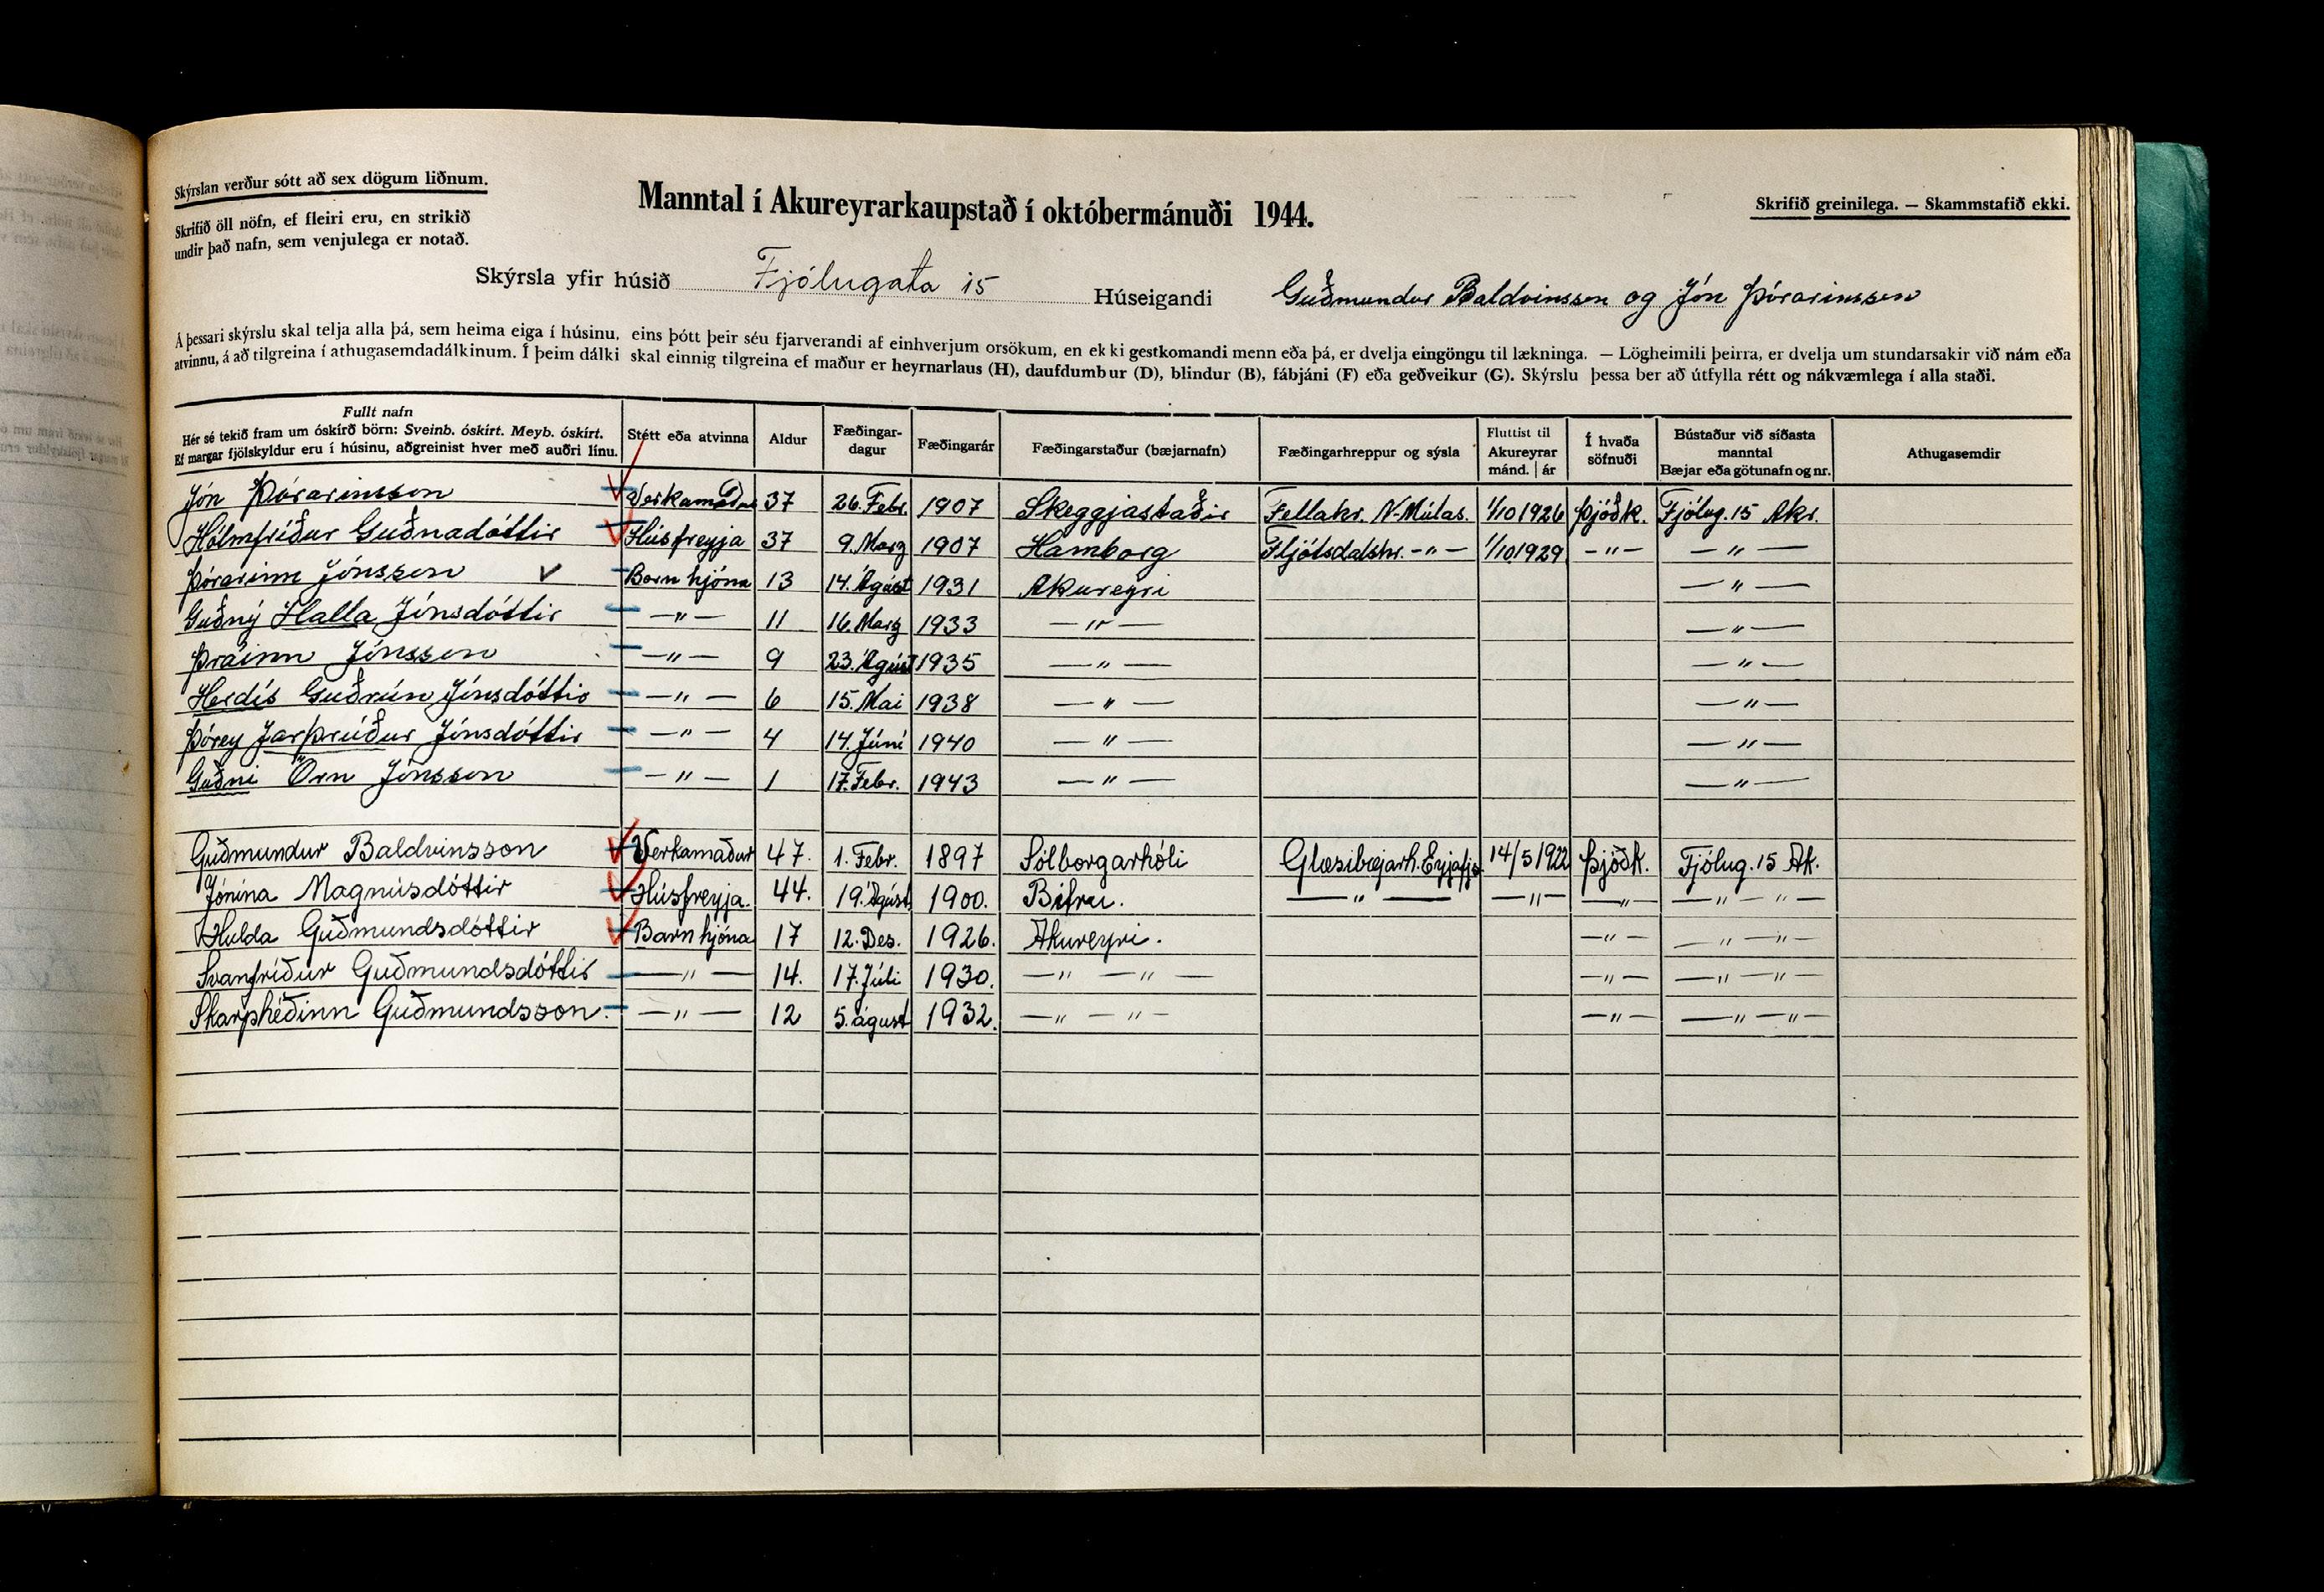 Skýrslan verður sótt að sex dögum liðnum.
Skrifið öll nöfn, ef fleiri eru, en strikið
undir það nafn, sem venjulega er notað.
Manntal í Akureyrarkaupstað í októbermánuði 1944.
Skrifið greinilega. — Skammstafið ekki.
Skýrsla yfir húsið Fjólugata 15 Húseigandi Guðmundur Baldvinsson og Jón Þórarinsson
Á þessari skýrslu skal telja alla þá, sem heima eiga í húsinu, eins þótt þeir séu fjarverandi af einhverjum orsökum, en ekki gestkomandi menn eða þá, er dvelja eingöngu til lækninga. — Lögheimili þeirra, er dvelja um stundarsakir við nám eða
atvinnu, á að tilgreina í athugasemdadálkinum. Í þeim dálki skal einnig tilgreina ef maður er heyrnarlaus (H), daufdumbur (D), blindur (B), fábjáni (F) eða geðveikur (G). Skýrslu þessa ber að útfylla rétt og nákvæmlega í alla staði.
Fullt nafn
Hér sé tekið fram um óskírð börn: Sveinb. óskírt. Meyb. óskírt.
Ef margar fjölskyldur eru í húsinu, aðgreinist hver með auðri línu.
Stétt eða atvinna
Aldur
Fæðingar-
dagur
Fæðingarár
Fæðingarstaður (bæjarnafn)
Fæðingarhreppur og sýsla
Fluttist til
Akureyrar
mánd. | ár
Í hvaða
söfnuði
Bústaður við síðasta
manntal
Bæjar eða götunafn og nr.
Athugasemdir
Jón Þórarinsson Verkamaður 37 26. Febr. 1907 Skeggjastaðir Fellahr. N-Múlas. 1/10 1926 Þjóðk. Fjólug. 15 Akr.
Hólmfríður Guðnadóttir Húsfreyja 37 9. Marz 1907 Hamborg Fljótsdalshr. -"- 1/10 1929 -"- -"-
Þórarinn Jónsson Barn hjóna 13 14. Ágúst 1931 Akureyri -"-
Guðný Halla Jónsdóttir -"- 11 16. Marz 1933 -"- -"-
Þráinn Jónsson -"- 9 23. Ágúst 1935 -"- -"-
Herdís Guðrún Jónsdóttir -"- 6 15. Mai 1938 -"- -"-
Þórey Jarþrúður Jónsdóttir -"- 4 14. Júní 1940 -"- -"-
Guðni Örn Jónsson -"- 1 17. Febr. 1943 -"- -"-
Guðmundur Baldvinsson Verkamaður 47. 1. Febr. 1897 Sólborgarhóli Glæsibæjarh. Eyjafjs. 14/5 1922 Þjóðk. Fjólug. 15 Ak.
Jónína Magnúsdóttir Húsfreyja. 44. 19. Ágúst 1900. Bitru. -"- -"- -"- -"- -"-
Hulda Guðmundsdóttir Barn hjóna 17 12. Des. 1926. Akureyri. -"- -"- -"-
Svanfríður Guðmundsdóttir -"- 14. 17. Júli 1930. -"- -"- -"- -"- -"-
Skarphéðinn Guðmundsson. -"- 12 5. ágúst 1932. -"- -"- -"- -"- -"-